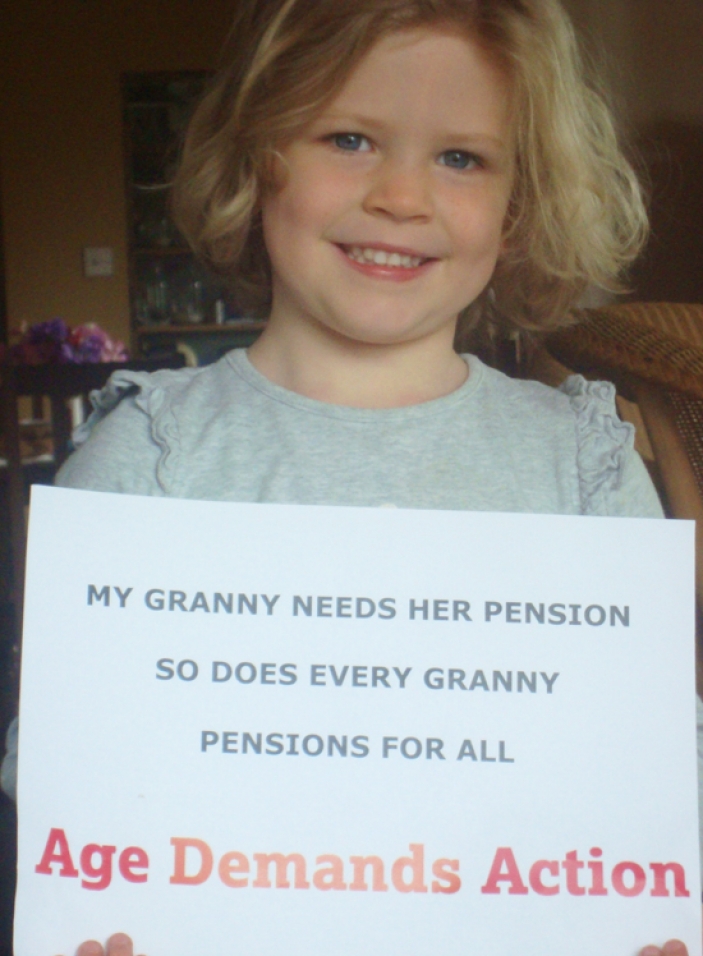 MY GRANNY NEEDS HER PENSION
SO DOES EVERY GRANNY
PENSIONS FOR ALL
Age Demands Action